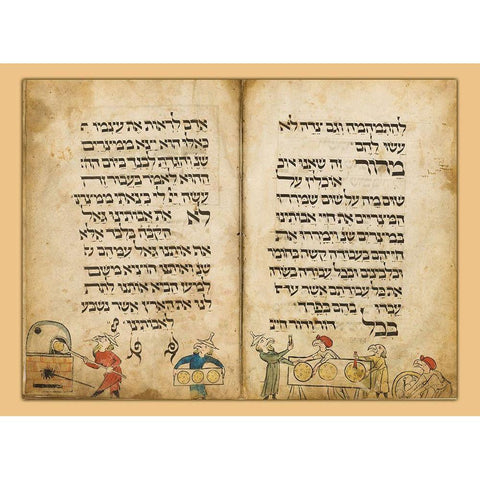 להתמהמה וגם צידה לא
עשו להם
מרור זה שאנו אוכ
אוכלין על
שום מה על שום שמררו
המצריים את חיי אבותינו
במצרים שנ' וימררו את
חייהם בעבודה קשה
בחומר ובלבנים ובכל
עבודה בשדה את
כל עבודתם אשר עבדו
בהם בפרך
בכל דור ודור חייב
אדם לראות את עצמו י
כאילו הוא יצא ממצרים
שנ' והגדת לבנך ביום
ההוא לאמר בעבור זה
עשה יי לי בצאתי ממצרים
לא את אבותינו גאל
הקב״ה בלבד אלא
אף אותנו גאל עמהם שנ'
ואותנו הוציא משם
למען הביא אותנו לתת
לנו את הארץ אשר נשבע
לאבותינו